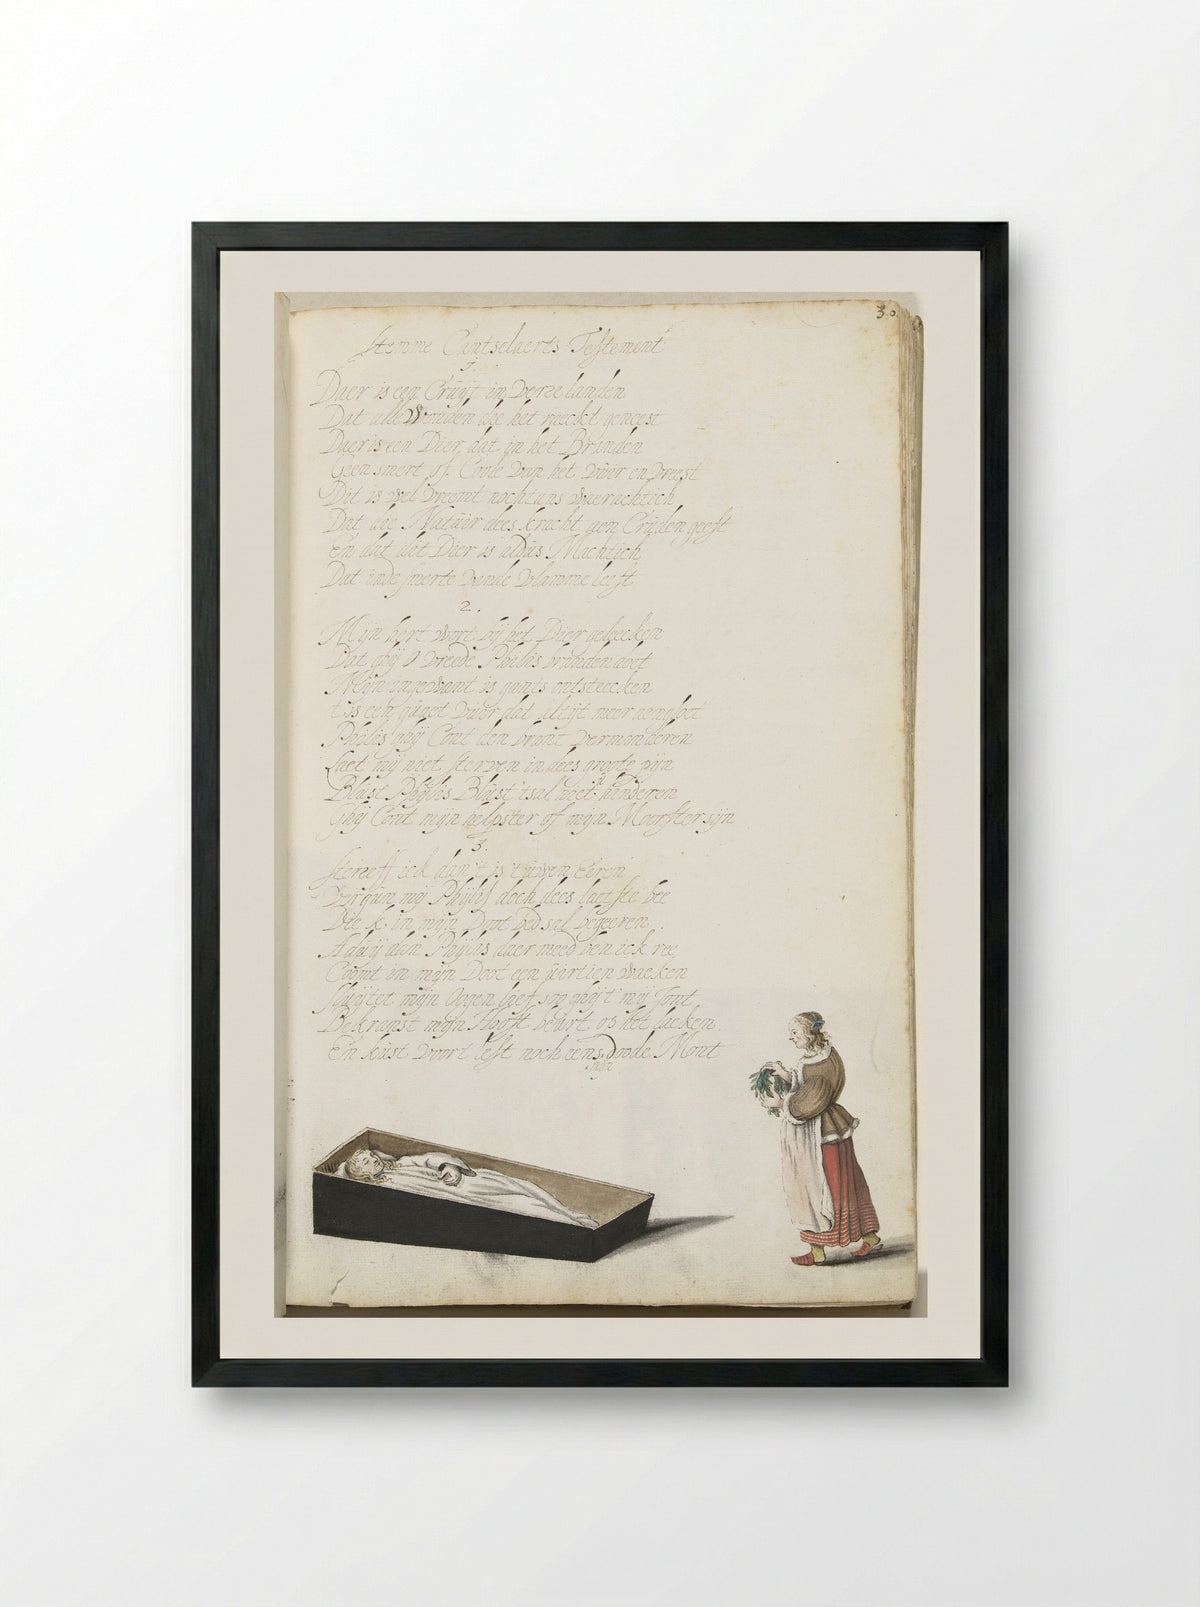 30.
Stemme Cantselaers Testement
1.
Daer is een Cruyt in verre landen
Dat alle Wonden die het raeckt geneest
Daer is een Dier dat in het Branden
Geen smert of Coude van het vuur en vreest
Dit is wel vreemt nochtans waerachtich
Dat die Natuer dees kracht aen Cruyden geeft
En dat dit Dier is aldus Machtich
Dat inde smerte vande vlamme leeft
2.
Mijn hert wort bij het Dier geleecken
Dat ghij O vreede Philis branden doet
Mijn ingewant is gants ontsteecken
t is een quaet vuur dat altijt meer
Philis ghij Cont den brant verminderen
Laet mij niet sterven in dees groote pijn
Blust Phijlis Blust tsal niet hinderen
Ghij Cont mijn helpster of mijn Moorster sijn
3.
Sterff ick dan t is t uwen Eeren
Vergun mij Phijlis doch dees laetste bee
Die k in mijn Doot bed sal begeeren
Phijlis daer meed ben ick ree
Coompt in mijn Doot een
Sluijtet mijn Oogen
Bekranst mijn Hooft op het laecken
En kust voort lest noch eens doode Mont
mijn